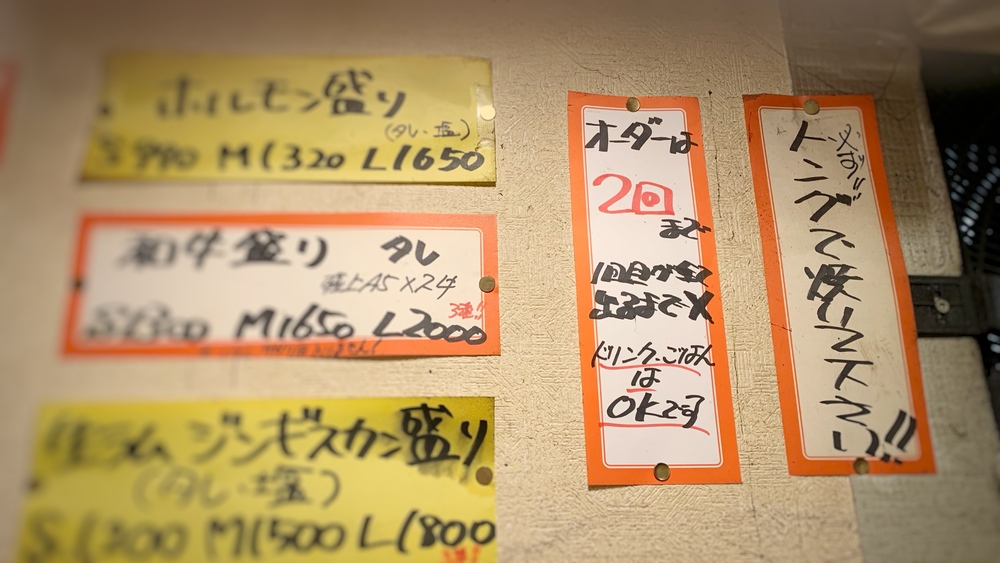 ホルモン盛り
(タレ・塩)
S 990 M1320 L1650
和牛盛り タレ
極上A5×24
3種!!
S1300 M1650 L2000
生ラム ジンギスカン盛り
(タレ・塩)
S1200 M1500 L1800
オーダーは
2回
まで
1回目が全て
出るまで✕
ドリンク、ごはん
は
OKです
必ず!!
トングで焼いて下さい!!